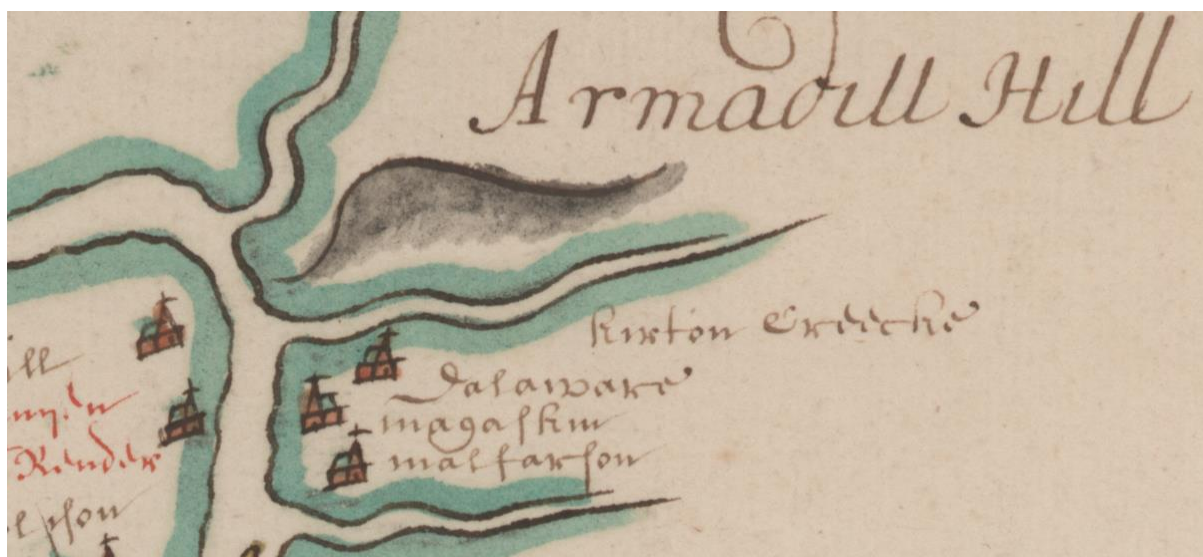 Armadill Hill
kirton Creecke
Dalaware
magaskin
malfarson
ill
Render